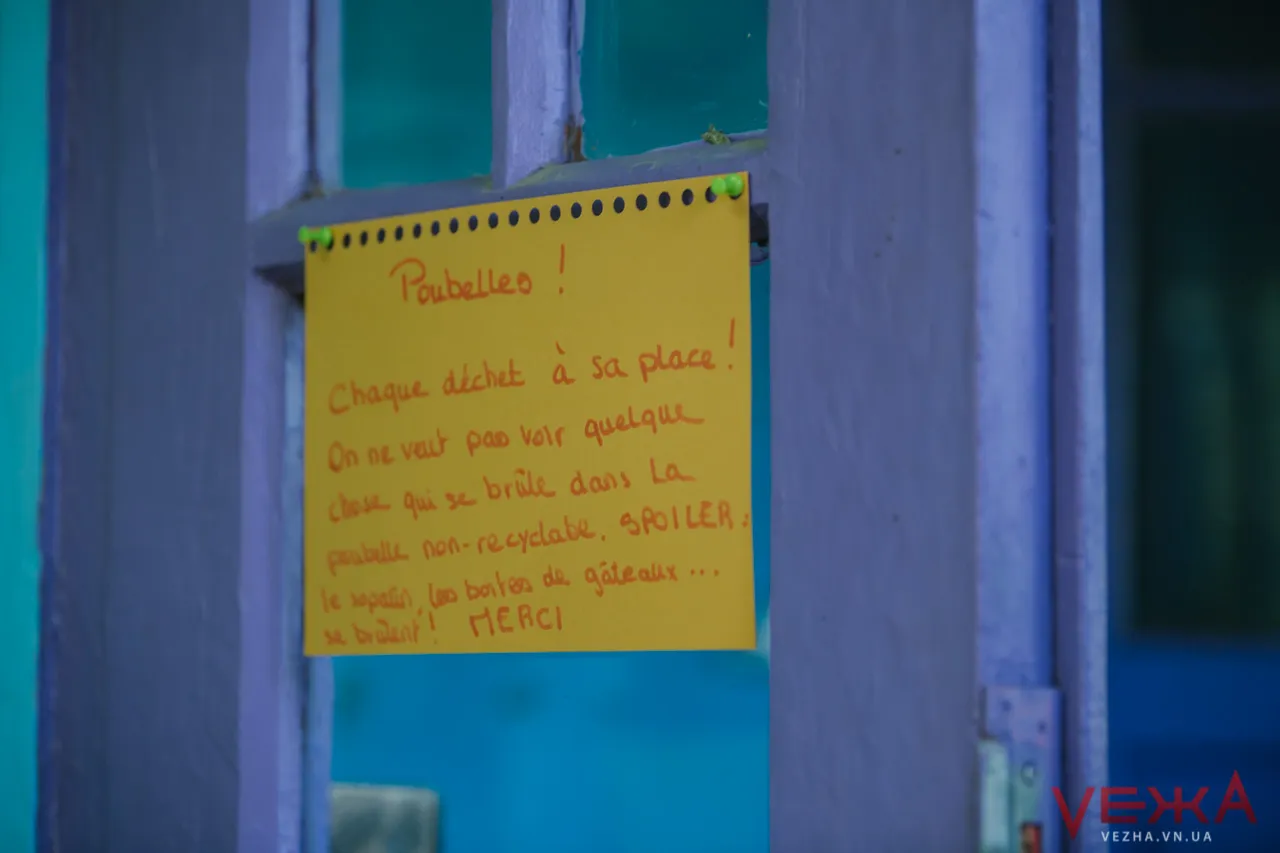 Poubelles !
Chaque déchet à sa place !
On ne veut pas voir quelque
chose qui se brûle dans la
poubelle non-recyclabe. SPOILER :
le sapin, les boîtes de gâteaux ...
se brûlent ! MERCI
VEЖA
VEZHA.VN.UA